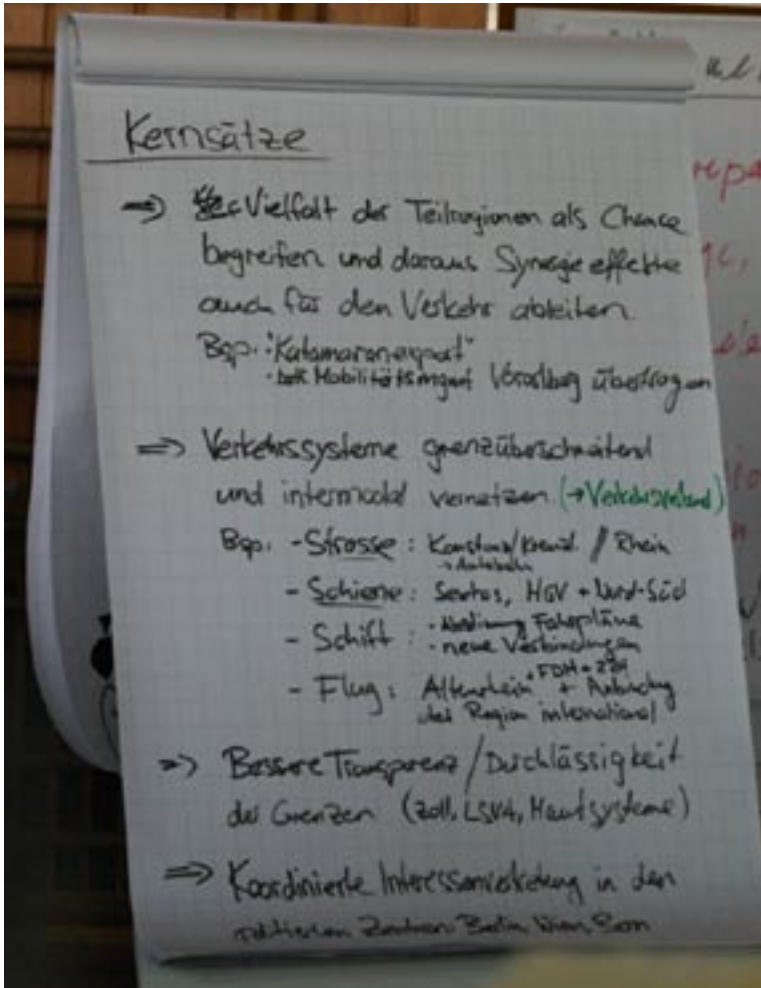 Kernsätze
⇒ Vielfalt der Teilregionen als Chance
begreifen und daraus Synergieeffekte
auch für den Verkehr ableiten.
Bsp.: "Katamaranexport"
Vorarlberg übertragen
⇒ Verkehrssysteme grenzüberschreitend
und intermodal vernetzen (→ Verkehrsverbund)
Bsp. - Strasse : Konstanz/Kreuzl. // Rhein
→ Autobahn
- Schiene : Seehas, HGV + Nord-Süd
- Schiff : · Abstimmung Fahrpläne
· neue Verbindungen
- Flug : Altenrhein + FDH + ZRH + Anbindung
der Region international
⇒ Bessere Transparenz / Durchlässigkeit
der Grenzen (Zoll, LSVA, Mautsysteme)
⇒ Koordinierte Interessenvertretung in den
politischen Zentren: Berlin, Wien, Bern